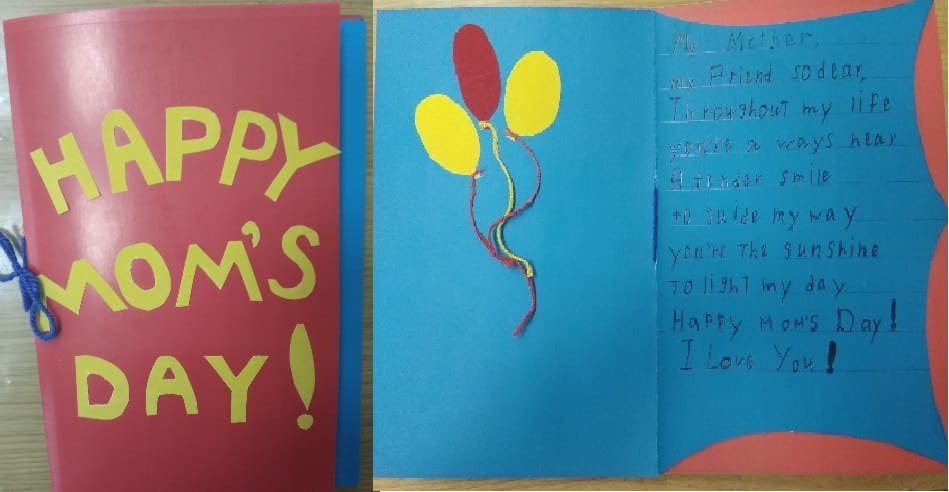 HAPPY
MOM'S
DAY!
My Mother,
my Friend so dear,
Throughout my life
you're a ways near
A tender smile
to guide my way
you're The sunshine
TO lighT my day
Happy MOM'S Day!
I Love You!